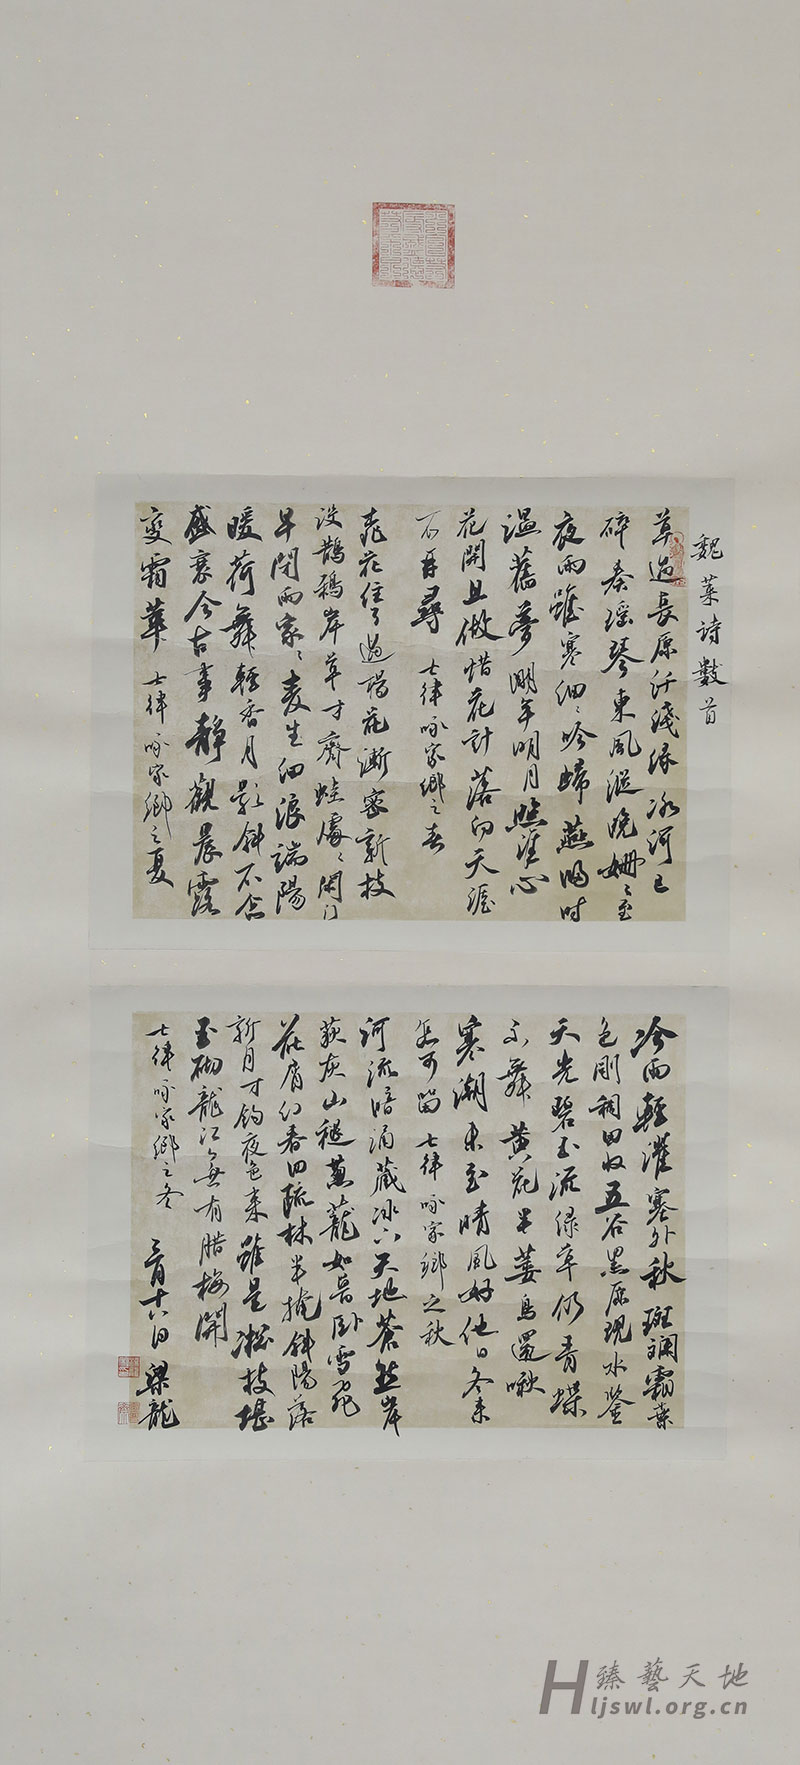 魏葉詩數首
草過長原阡淺綠冰河已
碎奏瑤琴東風漫晚姗々至
夜雨雖寒細々吟蟑燕歸时
溫舊夢潮年明月照望心
花開且做惜花計落向天涯
不再尋 七律咏家鄉之春
飛花住了過楊花漸密新枝
没鵲鴉岸草才齊蛙處々閑门
早閉雨家々麦生细浪端陽
暖荷舞輕香月影斜不念
盛衰今古事静觀晨露
变霜華 七律咏家鄉之夏
冷雨輕灌塞外秋斑斓霜葉
色剛稠田收五谷黑原現水鉴
天光碧玉流绿草仍青蝶
不舞黄花半萎鳥還啾
寒潮未至晴風好他日冬来
怎可留 七律咏家鄉之秋
河流暗涌藏冰下天地蒼茫岸
荻灰山褪蔥蘢如昔卧雪飛
花肩幻春回疏林半掩斜陽落
新月才钩夜色来雖是凇枝堪
玉砌龍江無有腊梅開
七律咏家鄉之冬 三月十六日 梁龍
H 臻藝天地
ljswl.org.cn